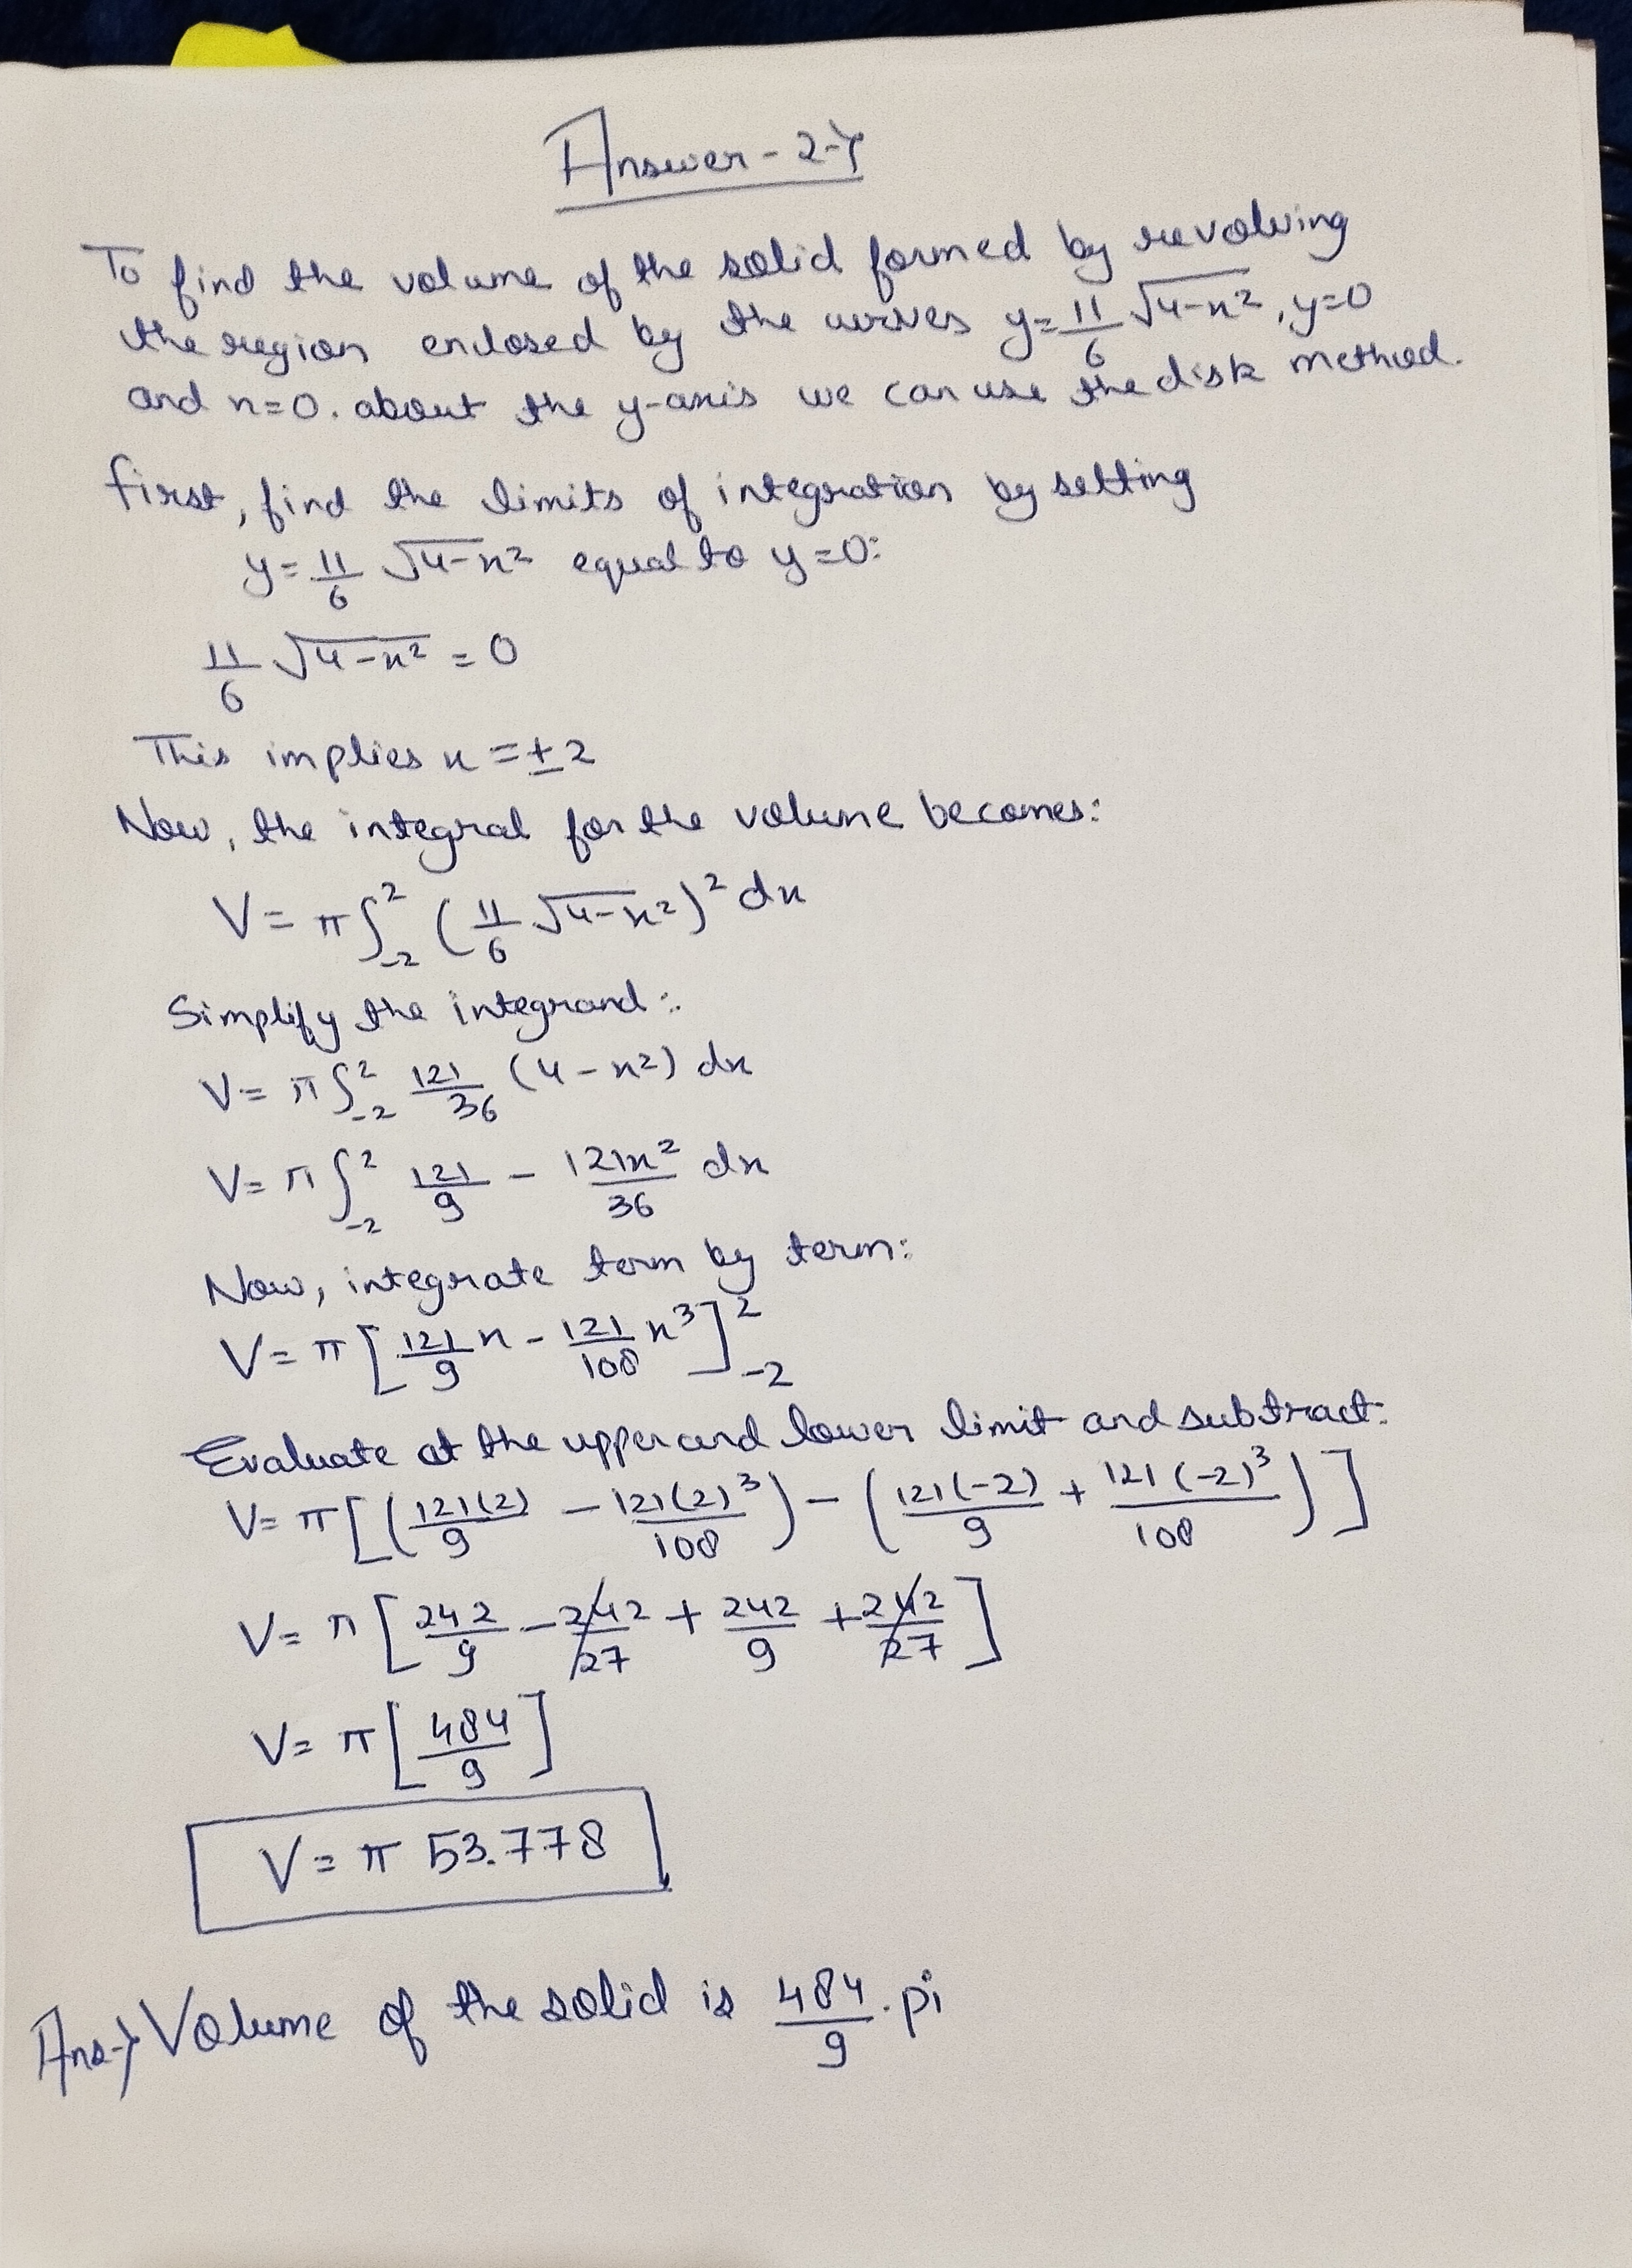 Answer-2→
To find the volume of the solid formed by revolving
the region enclosed by the curves y=11/6 √4-x², y=0
and x=0. about the y-axis we can use the disk method.
first, find the limits of integration by setting
y=11/6 √4-x² equal to y=0:
11/6 √4-x² = 0
This implies x = ±2
Now, the integral for the volume becomes:
V= π∫₋₂² (11/6 √4-x²)² dx
Simplify the integrand:
V= π∫₋₂² 121/36 (4-x²) dx
V= π∫₋₂² 121/9 - 121x²/36 dx
Now, integrate term by term:
V= π [121/9 x - 121/108 x³]₋₂²
Evaluate at the upper and lower limit and subtract:
V= π[(121(2)/9 - 121(2)³/108) - (121(-2)/9 + 121(-2)³/108)]
V= π [242/9 - 242/27 + 242/9 + 242/27]
V= π [484/9]
V= π 53.778
Ans→ Volume of the solid is 484/9 . pi